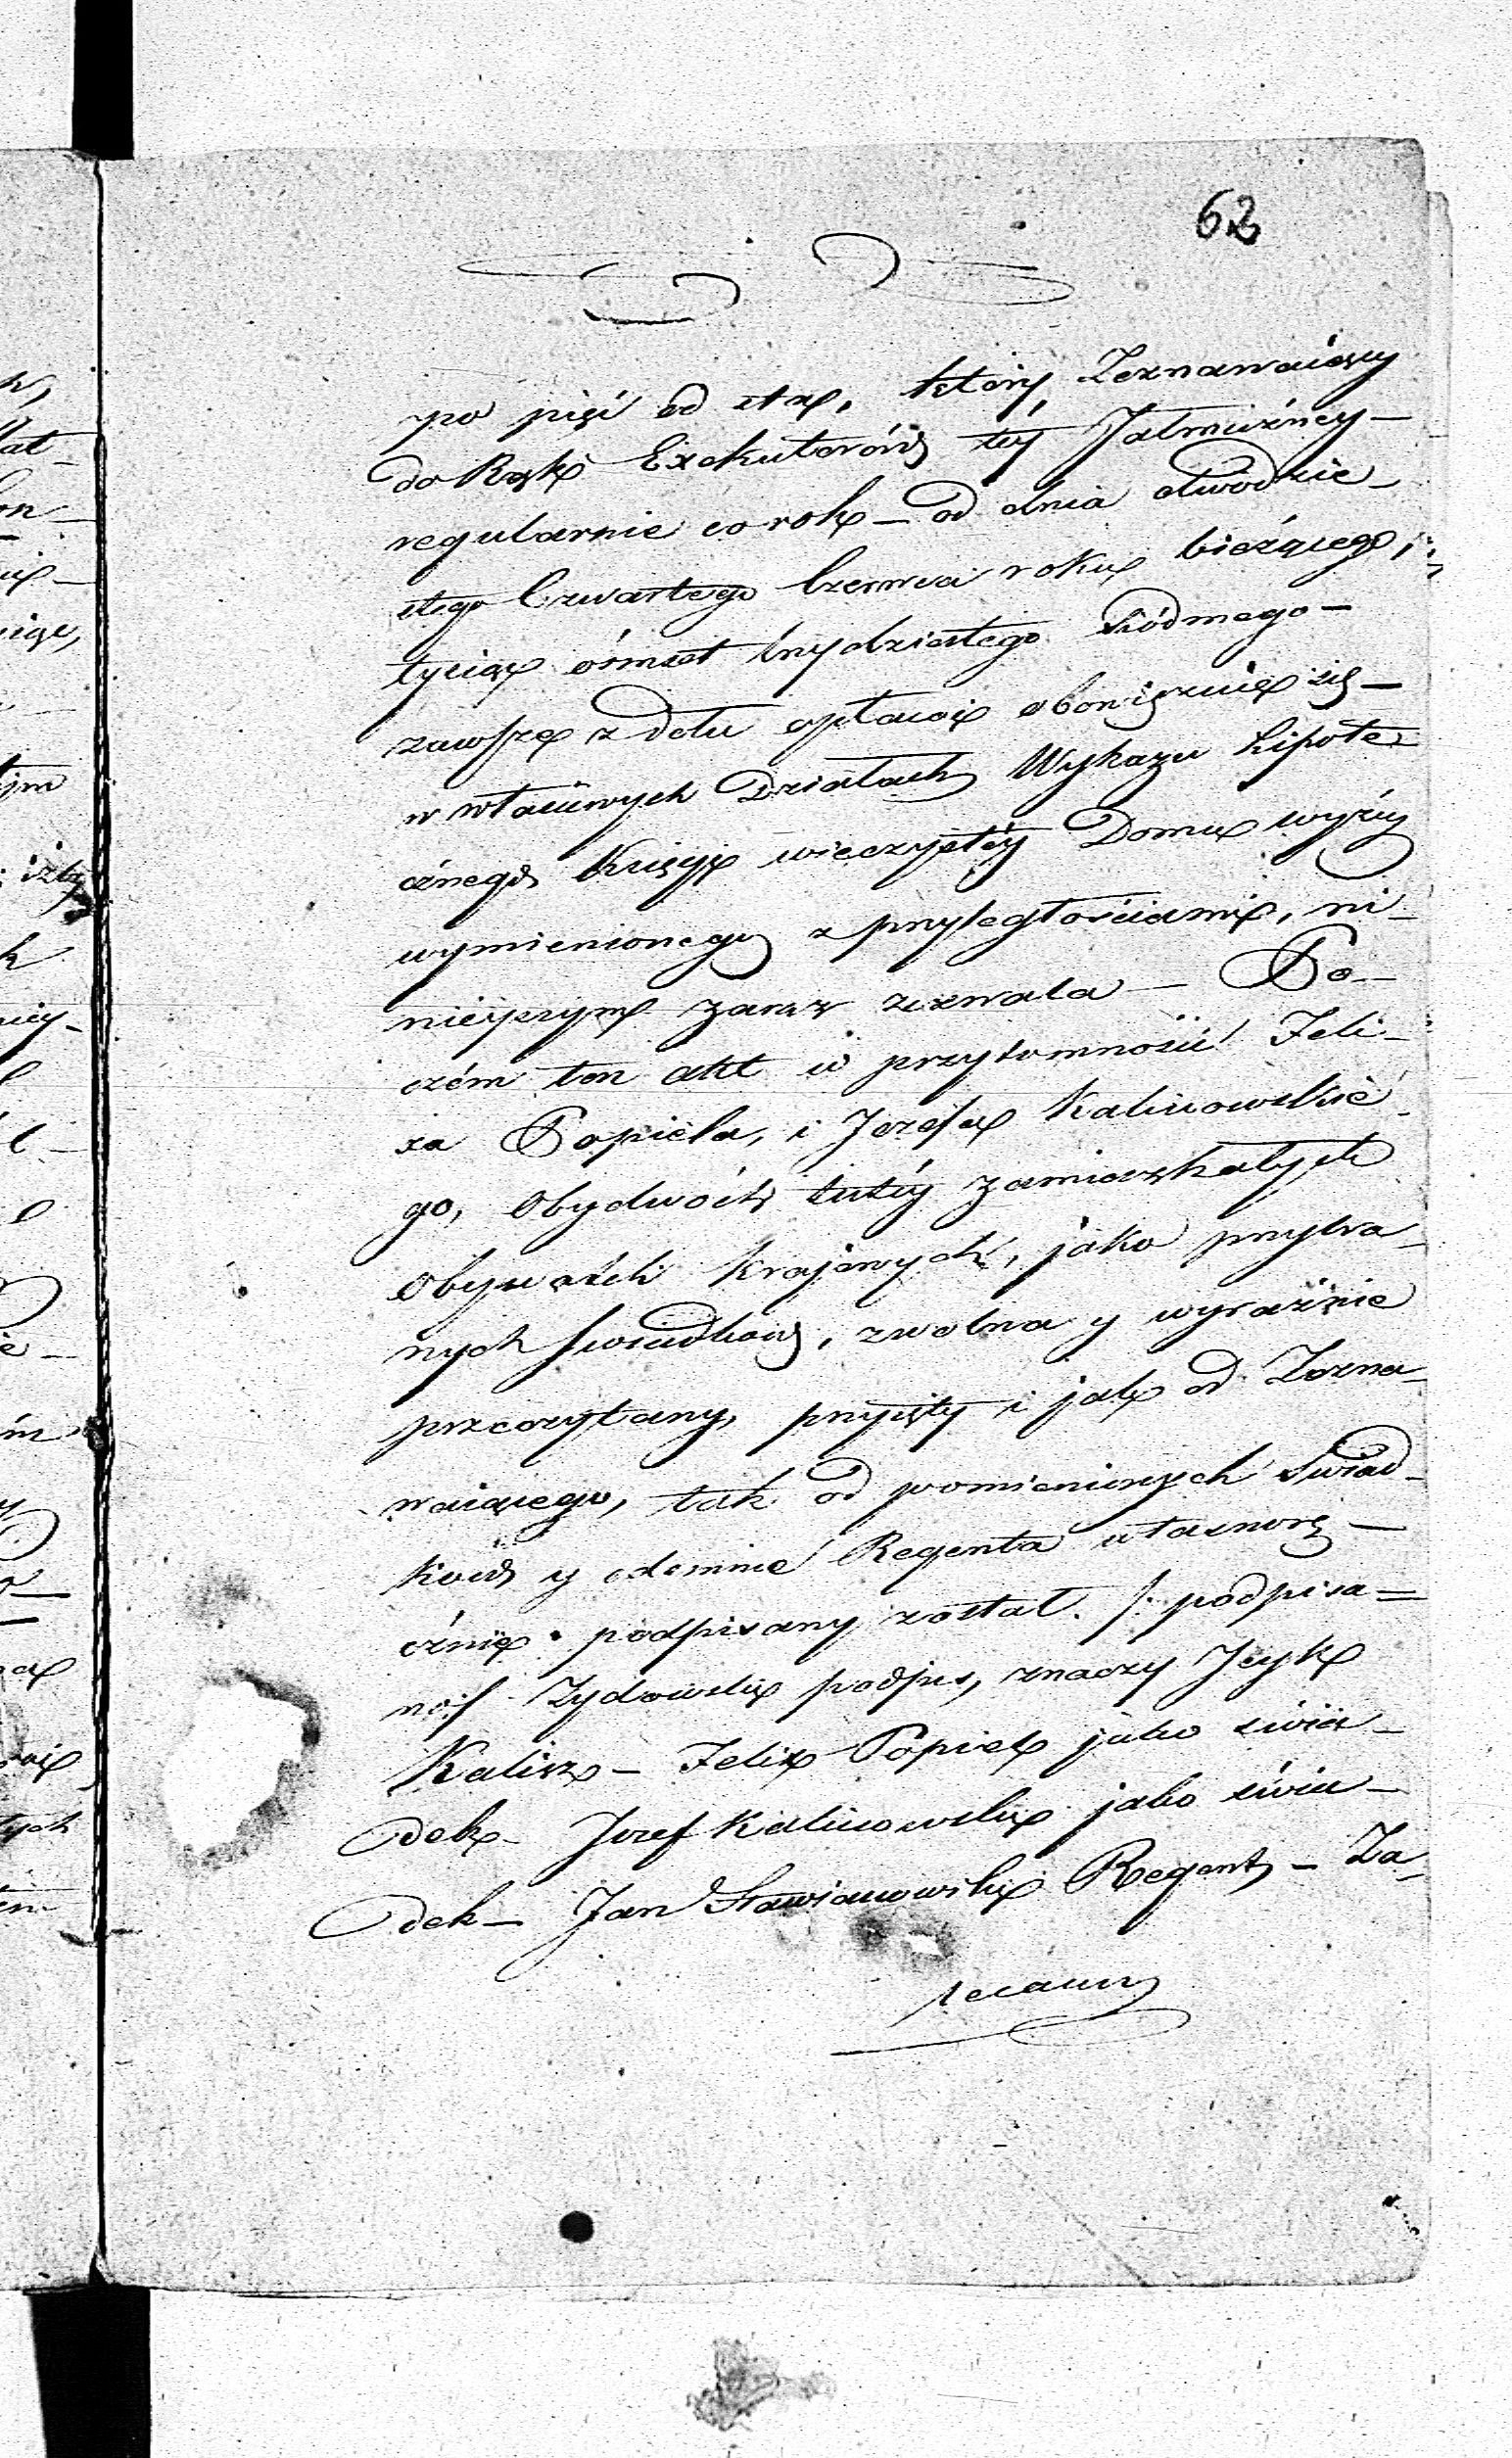 62
po pięć od sta, który Zeznawaiący
do Rąk Exekutorów téy Jałmużney —
regularnie co rok — od dnia dwódzie-
stego Czwartego Czerwca roku bieżącego,
tysiąc ośmset trzydziestego siódmego —
zawsze z dołu opłacać obowiązuie się —
w właściwych Działach Wykazu hipote-
cznego Księgi wieczystéy Domu wyżéy
wymienionego z przyległościami, ni-
nieyszym zaraz zezwala — Po-
czém ten akt w przytomności Feli-
xa Popiela, i Jozefa Kalinowskie-
go, Obydwóch tutéy zamieszkałych
Obywateli krajowych, jako przybra-
nych świadków, zwolna y wyraźnie
przeczytany, przyięty i jak od Zezna-
waiącego, tak od pomienionych świad-
ków y odemnie Regenta własnorę-
cznie podpisany został. /: podpisa-
no:/ Zydowski podpis, znaczy Icyk
Kalisz — Felix Popiel jako świa-
dek — Jozef Kalinowski jako świa-
dek — Jan Sławianowski Regent — Za-